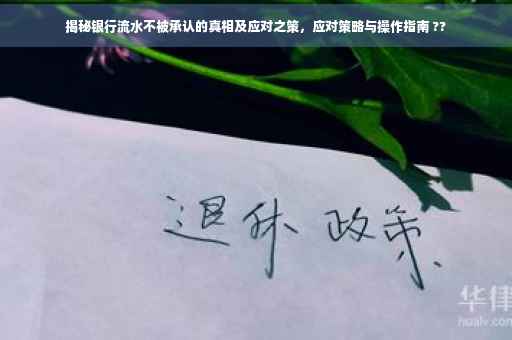 揭秘银行流水不被承认的真相及应对之策，应对策略与操作指南 ??
退休 政策
华律
hualv.com